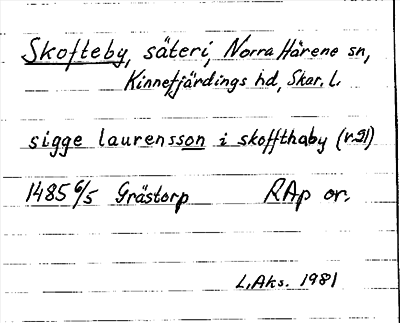 Skofteby, säteri, Norra Härene sn,
Kinnefjärdings hd, Skar. L.
sigge laurensson i skoffthaby (r. 21)
1485 6/5 Grästorp RAp or.
L. Aks. 1981